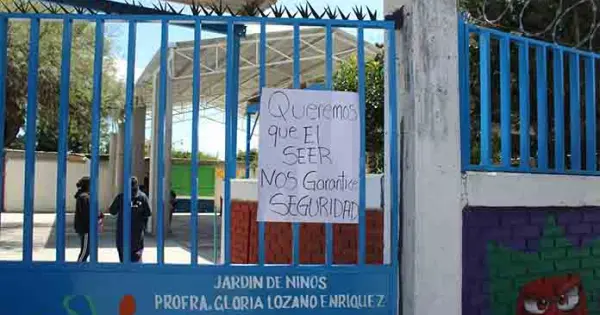 Queremos
que El
SEER
NOS Garantice
SEGURIDAD
JARDIN DE NIÑOS
PROFRA. GLORIA LOZANO ENRIQUEZ